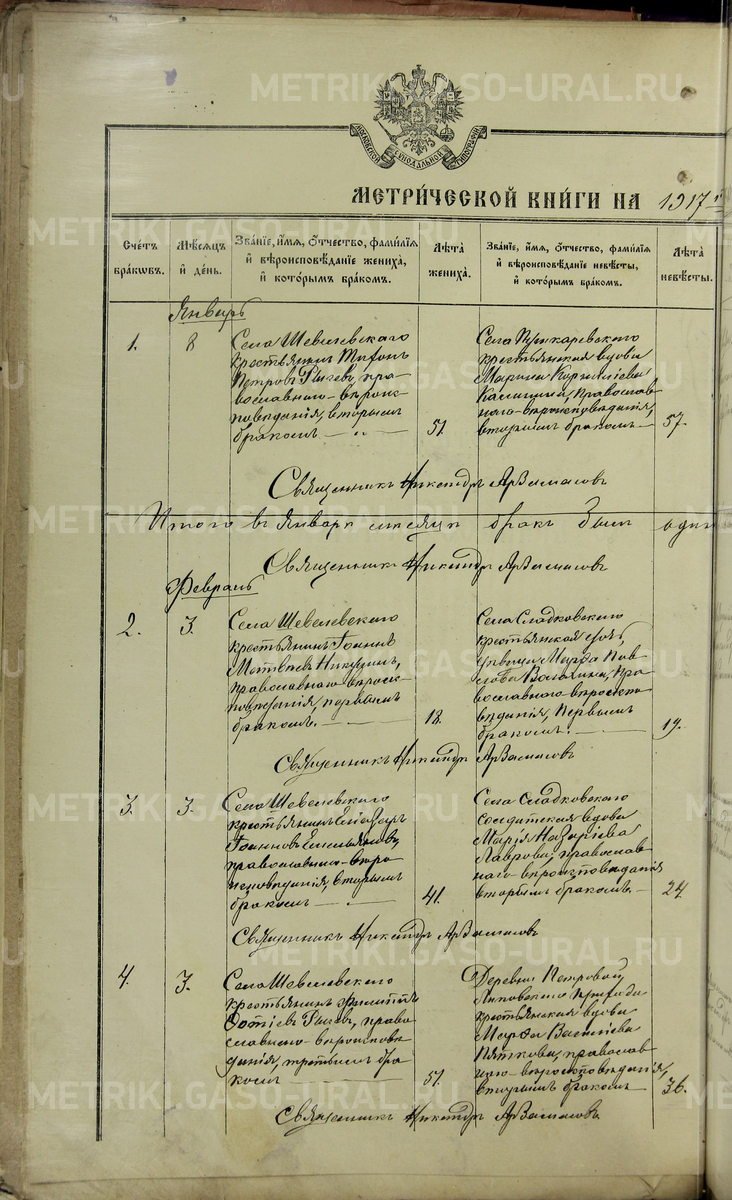 МОСКОВСКОЙ СѴНОДАЛЬНОЙ ТИПОГРАФІИ
МЕТРИ́ЧЕСКОЙ КНИ́ГИ НА 1917 г
Сче́тъ бра́кѡвъ.
Мѣ́сяцъ и҆ де́нь.
Зва́нїе, и҆́мѧ, ѻ҆́тчество, фами́лїѧ и҆ вѣроисповѣ́данїе жениха̀, и҆ кото́рымъ бра́комъ.
Лѣ́та жениха̀.
Зва́нїе, и҆́мѧ, ѻ҆́тчество, фами́лїѧ и҆ вѣроисповѣ́данїе невѣ́сты, и҆ кото́рымъ бра́комъ.
Лѣ́та невѣ́сты.
Январь
1.
8
Села Шевелевскаго
крестьянинъ Тихонъ
Петровъ Рычевъ, пра-
вославнаго вѣроис-
повѣданія, вторымъ
бракомъ
51.
Села
крестьянская вдова
Марина Корнилiева
православ-
наго вѣроисповѣданія,
вторымъ бракомъ
57.
Священникъ Никандръ Арзамасовъ
Итого въ Январѣ мѣсяцѣ бракъ былъ одинъ
Священникъ Никандръ Арзамасовъ
Февраль
2.
3.
Села Шевелевскаго
крестьянинъ Іоаннъ
Матвѣевъ Никулинъ,
православнаго вѣроис-
повѣданія, первымъ
бракомъ.
18.
Села Сладковскаго
крестьянская
дѣвица Марѳа Пав-
лова пра-
вославнаго вѣроиспо-
вѣданія, первымъ
бракомъ.
19.
Священникъ Никандръ Арзамасовъ
3.
3.
Села Шевелевскаго
крестьянинъ Елеазаръ
Іоанновъ Емельяновъ,
православнаго вѣро-
исповѣданія, вторымъ
бракомъ
41.
Села Сладковскаго
солдатская вдова
Марія Назаріева
Лаврова, православ-
наго вѣроисповѣданія
вторымъ бракомъ.
24
Священникъ Никандръ Арзамасовъ
4.
3.
Села Шевелевскаго
крестьянинъ Филиппъ
Фотіевъ Рычевъ, право-
славнаго вѣроисповѣ-
данія, третьимъ бра-
комъ
51.
Деревни Петровой
Липовскаго прихода
крестьянская вдова
Марѳа Василіева
Пяткова, православ-
наго вѣроисповѣданія,
вторымъ бракомъ
36.
Священникъ Никандръ Арзамасовъ
METRIKI.GASO-URAL.RU